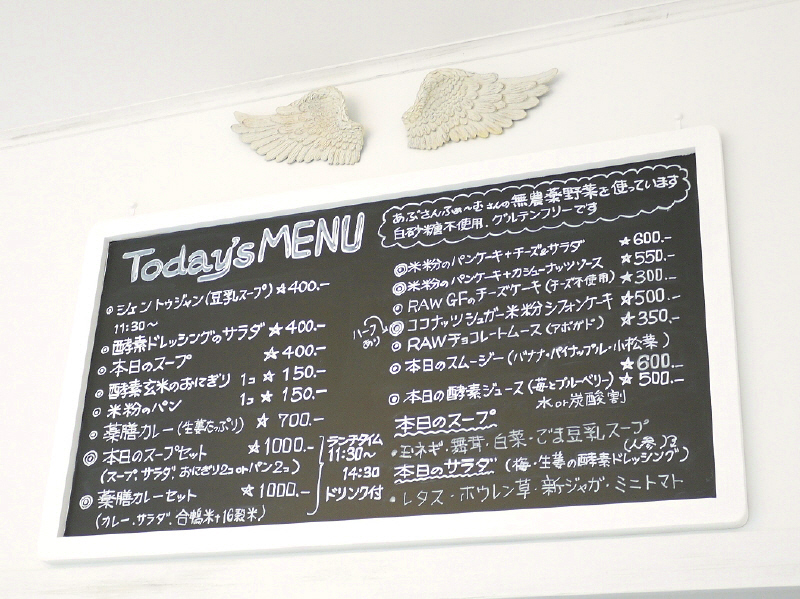 Today's MENU
シェントウジャン(豆乳スープ) ☆400.-
11:30〜
酵素ドレッシングのサラダ ☆400.-
本日のスープ ☆400.-
酵素玄米のおにぎり 1コ ☆150.-
米粉のパン 1コ ☆150.-
薬膳カレー(生姜たっぷり) ☆700.-
本日のスープセット ☆1000.-
(スープ、サラダ おにぎり2コorパン2コ)
薬膳カレーセット ☆1000.-
(カレー、サラダ、合鴨米+16穀米)
ランチタイム
11:30〜
14:30
ドリンク付
あぶさんふぁ〜むさんの無農薬野菜を使っています
白砂糖不使用、グルテンフリーです
米粉のパンケーキ+チーズ&サラダ ☆600.-
米粉のパンケーキ+カシューナッツソース ☆550.-
RAW GFのチーズケーキ(チーズ不使用) ☆300.-
ハーフあり
ココナッツシュガー米粉シフォンケーキ ☆500.-
RAWチョコレートムース(アボガド) ☆350.-
本日のスムージー(バナナ・パイナップル・小松菜)
☆600.-
本日の酵素ジュース(苺とブルーベリー) ☆500.-
水or炭酸割
本日のスープ
・玉ネギ・舞茸・白菜・ごま豆乳スープ
本日のサラダ(梅・生姜の酵素ドレッシング)
・レタス・ホウレン草・新ジャガ・ミニトマト